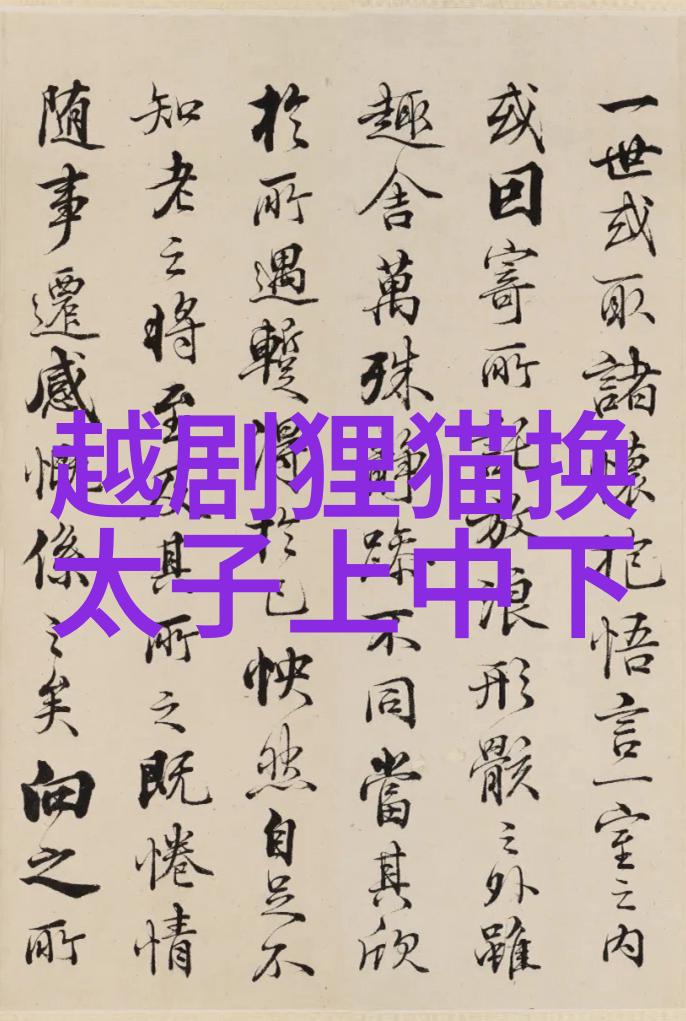 越剧狸猫换
太子上中下
一世或取諸懷抱悟言一室之內
或因寄所託放浪形骸之外雖
趣舍萬殊靜躁不同當其欣
於所遇蹔得於己怏然自足不
知老之將至及其所之既惓情
随事遷感慨係之矣向之所